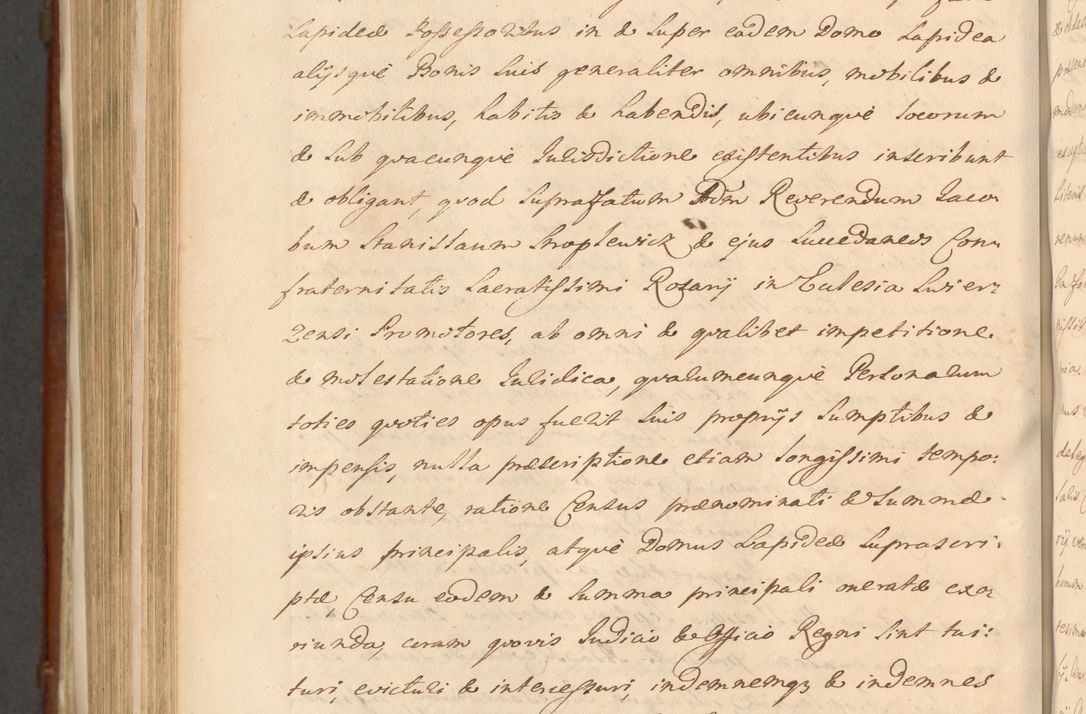 Lapideæ Possessoribus in & super eadem Domo Lapidea
alijsquè Bonis suis generaliter omnibus, mobilibus &
immobilibus, habitis & habendis, ubicunquè locorum
& sub quacunquè Jurisdictione existentibus inscribunt
& obligant, quod suprafatum Adm Reverendum Jaco-
bum Stanislaum & ejus succedaneos Con-
fraternitatis Sacratissimi Rosarij in Ecclesia Swier-
zensi Promotores, ab omni & qualibet impetitione
& molestatione Juridica, quarumcunquè Personarum
toties quoties opus fuerit suis proprijs sumptibus &
impensis, nulla præscriptione etiam longissimi tempo:
ris obstante, ratione Census prænominati & Summæ
ipsius principalis, atquè Domus Lapideæ suprascri:
ptæ, Censu eodem & Summa principali oneratæ exo-
riunda, coram quovis Judicio & Officio Regni sint tui:
turi, evicturi & intercessuri, indemnemq3 & indemnes